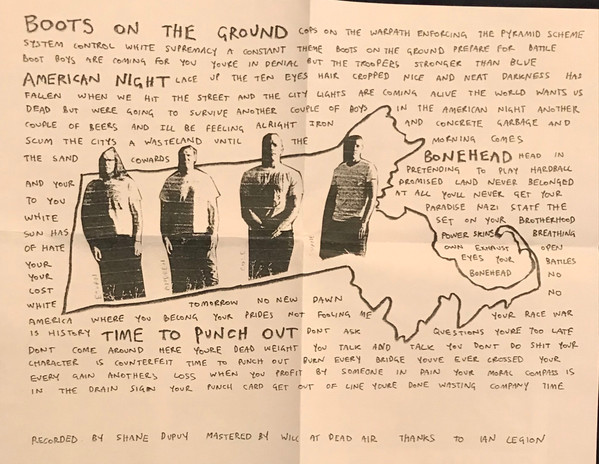 BOOTS ON THE GROUND COPS ON THE WARPATH ENFORCING THE PYRAMID SCHEME
SYSTEM CONTROL WHITE SUPREMACY A CONSTANT THEME BOOTS ON THE GROUND PREPARE FOR BATTLE
BOOT BOYS ARE COMING FOR YOU YOURE IN DENIAL BUT THE TROOPERS STRONGER THAN BLUE
AMERICAN NIGHT LACE UP THE TEN EYES HAIR CROPPED NICE AND NEAT DARKNESS HAS
FALLEN WHEN WE HIT THE STREET AND THE CITY LIGHTS ARE COMING ALIVE THE WORLD WANTS US
DEAD BUT WERE GOING TO SURVIVE ANOTHER COUPLE OF BOYS IN THE AMERICAN NIGHT ANOTHER
COUPLE OF BEERS AND ILL BE FEELING ALRIGHT IRON AND CONCRETE GARBAGE AND
SCUM THE CITYS A WASTELAND UNTIL THE MORNING COMES
BONEHEAD HEAD IN
THE SAND COWARDS PRETENDING TO PLAY HARDBALL
AND YOUR PROMISED LAND NEVER BELONGED
TO YOU AT ALL YOULL NEVER GET YOUR
WHITE PARADISE NAZI STATE THE
SUN HAS SET ON YOUR BROTHERHOOD
OF HATE POWER SKINS BREATHING
YOUR OWN EXHAUST OPEN
YOUR EYES YOUR BATTLES
LOST BONEHEAD NO
WHITE TOMORROW NO NEW DAWN NO
AMERICA WHERE YOU BELONG YOUR PRIDES NOT FOOLING ME YOUR RACE WAR
IS HISTORY TIME TO PUNCH OUT DONT ASK QUESTIONS YOURE TOO LATE
DONT COME AROUND HERE YOURE DEAD WEIGHT YOU TALK AND TALK YOU DONT DO SHIT YOUR
CHARACTER IS COUNTERFEIT TIME TO PUNCH OUT BURN EVERY BRIDGE YOUVE EVER CROSSED YOUR
EVERY GAIN ANOTHERS LOSS WHEN YOU PROFIT BY SOMEONE IN PAIN YOUR MORAL COMPASS IS
IN THE DRAIN SIGN YOUR PUNCH CARD GET OUT OF LINE YOURE DONE WASTING COMPANY TIME
RECORDED BY SHANE DUPUY MASTERED BY WILL AT DEAD AIR THANKS TO IAN LEGION